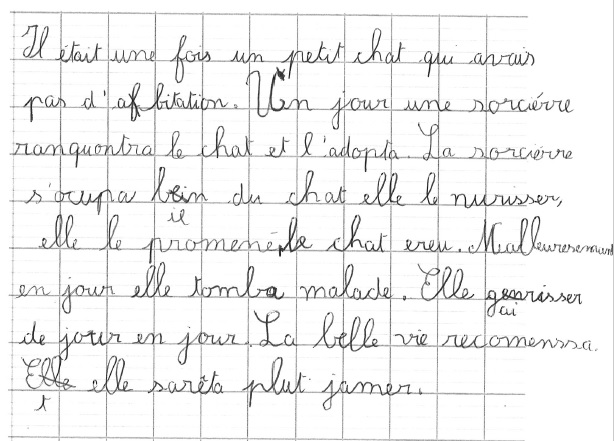 Il était une fois un petit chat qui avais
pas d'abitation. Un jour une sorciérre
ranquontra le chat et l'adopta. La sorcierre
s'ocupa bein du chat elle le nurisser,
elle le promené, le chat ereu. Malleuresemant
en jour elle tomba malade. Elle gairisser
de jour en jour. La belle vie recomenssa.
Elle elle sarêta plut jamer.
t